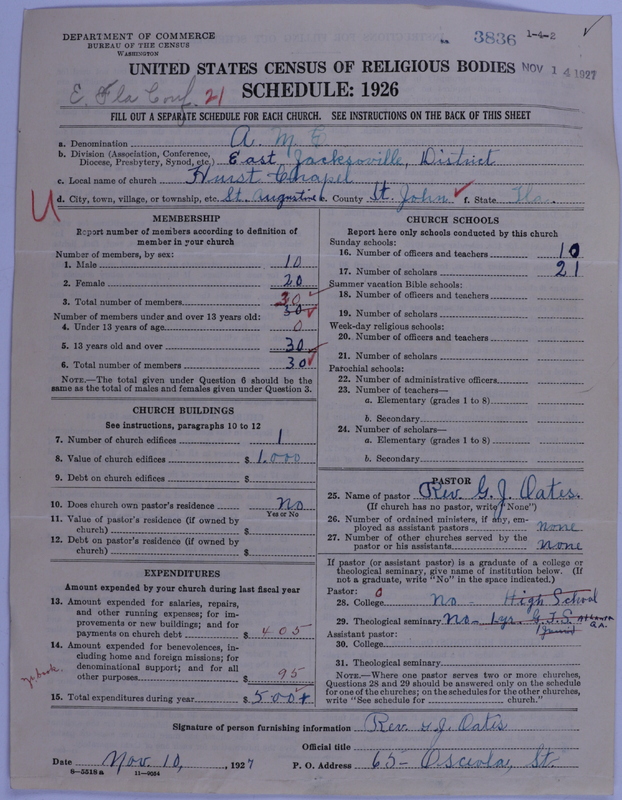 DEPARTMENT OF COMMERCE
BUREAU OF THE CENSUS
WASHINGTON
3836 1-4-2
UNITED STATES CENSUS OF RELIGIOUS BODIES NOV 14 1927
E. Fla Conf. 21 SCHEDULE: 1926
FILL OUT A SEPARATE SCHEDULE FOR EACH CHURCH. SEE INSTRUCTIONS ON THE BACK OF THIS SHEET
a. Denomination A. M. E
b. Division (Association, Conference, Diocese, Presbytery, Synod, etc.) East, Jacksonville, District
c. Local name of church Hurst Chapel
U d. City, town, village, or township, etc. St. Augustine e. County St. John f. State Fla.
MEMBERSHIP
Report number of members according to definition of member in your church
Number of members, by sex:
1. Male 10
2. Female 20
3. Total number of members 30
30
Number of members under and over 13 years old:
4. Under 13 years of age 0
5. 13 years old and over 30
6. Total number of members 30
NOTE.—The total given under Question 6 should be the same as the total of males and females given under Question 3.
CHURCH BUILDINGS
See instructions, paragraphs 10 to 12
7. Number of church edifices 1
8. Value of church edifices $ 1,000
9. Debt on church edifices $
10. Does church own pastor's residence No
Yes or No
11. Value of pastor's residence (if owned by church) $
12. Debt on pastor's residence (if owned by church) $
EXPENDITURES
Amount expended by your church during last fiscal year
13. Amount expended for salaries, repairs, and other running expenses; for improvements or new buildings; and for payments on church debt $ 405
14. Amount expended for benevolences, including home and foreign missions; for denominational support; and for all other purposes $ 95
15. Total expenditures during year $ 500
CHURCH SCHOOLS
Report here only schools conducted by this church
Sunday schools:
16. Number of officers and teachers 10
17. Number of scholars 21
Summer vacation Bible schools:
18. Number of officers and teachers
19. Number of scholars
Week-day religious schools:
20. Number of officers and teachers
21. Number of scholars
Parochial schools:
22. Number of administrative officers
23. Number of teachers—
a. Elementary (grades 1 to 8)
b. Secondary
24. Number of scholars—
a. Elementary (grades 1 to 8)
b. Secondary
PASTOR
25. Name of pastor Rev. G. J. Oates.
(If church has no pastor, write "None")
26. Number of ordained ministers, if any, employed as assistant pastors none
27. Number of other churches served by the pastor or his assistants None
If pastor (or assistant pastor) is a graduate of a college or theological seminary, give name of institution below. (If not a graduate, write "No" in the space indicated.)
Pastor: 0
28. College No - High School
29. Theological seminary No - 1 yr. G.T.S. Atlanta GA.
Assistant pastor:
30. College
31. Theological seminary
NOTE.—Where one pastor serves two or more churches, Questions 28 and 29 should be answered only on the schedule for one of the churches; on the schedules for the other churches, write "See schedule for ______ church."
Signature of person furnishing information Rev. G J. Oates
Official title
Date Nov. 10, , 1927 P. O. Address 65- Osceola, St.
8-5518a 11-9054